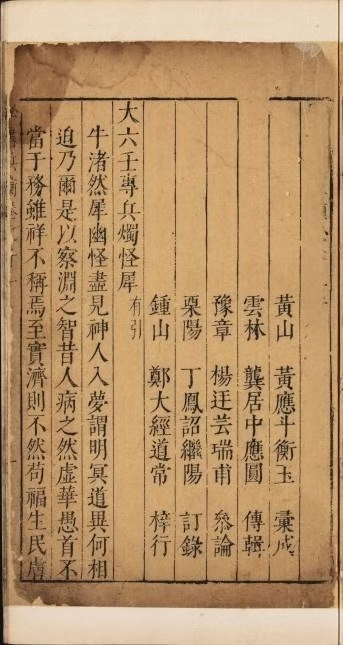 黃山 黃應斗衡玉 彙成
雲林 龔居中應圓 傳輯
豫章 楊迋芸瑞甫 叅論
栗陽 丁鳳詔繼陽 訂錄
鍾山 鄭大經道常 梓行
大六壬專兵燭怪犀 有引
牛渚然犀幽怪盡見神人入夢謂明冥道異何相
迫乃爾是以察淵之智昔人病之然虛華愚首不
當于務雖祥不稱焉至實濟則不然苟福生民虜